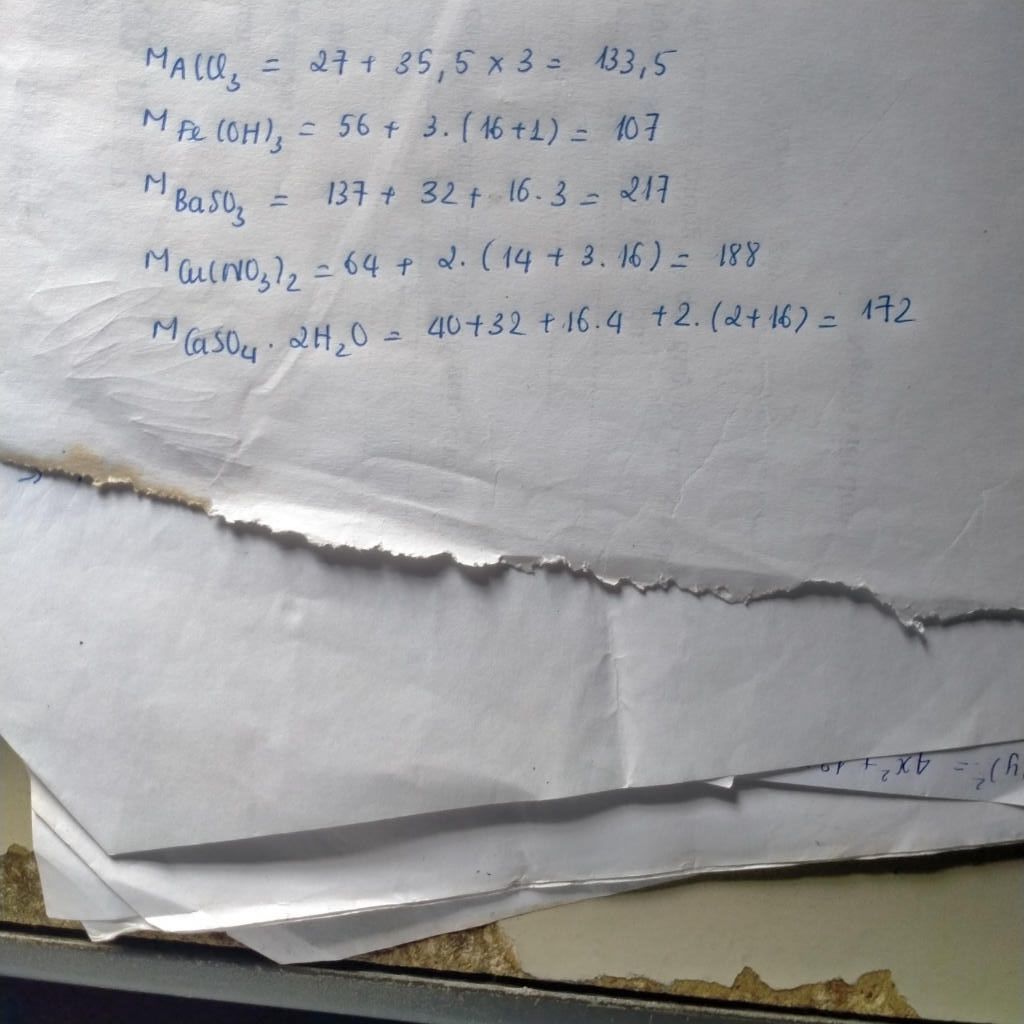 M AlCl₃ = 27 + 35,5 × 3 = 133,5
M Fe(OH)₃ = 56 + 3.(16+1) = 107
M BaSO₃ = 137 + 32 + 16.3 = 217
M Cu(NO₃)₂ = 64 + 2.(14 + 3.16) = 188
M CaSO₄ . 2H₂O = 40+32 +16.4 +2.(2+16) = 172
y)² = 4x² +